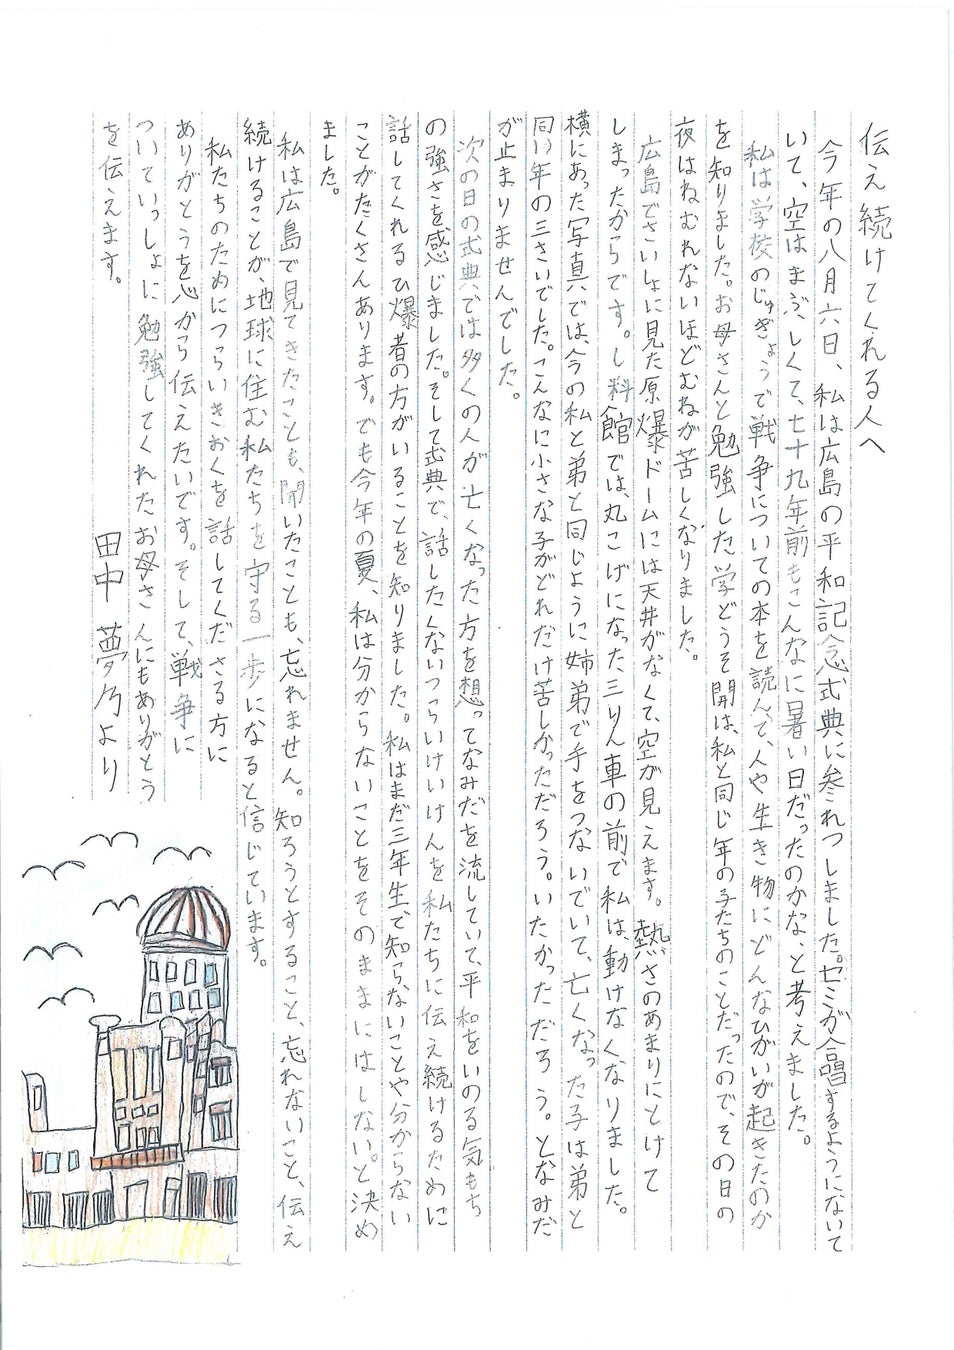 伝え続けてくれる人へ
今年の八月六日、私は広島の平和記念式典に参れつしました。セミが合唱するようにないて
いて、空はまぶしくて、七十九年前もこんなに暑い日だったのかな、と考えました。
私は学校のじゅぎょうで戦争についての本を読んで、人や生き物にどんなひがいが起きたのか
を知りました。お母さんと勉強した学どうそ開は、私と同じ年の子たちのことだったので、その日の
夜はねむれないほどむねが苦しくなりました。
広島でさいしょに見た原爆ドームには天井がなくて、空が見えます。熱さのあまりにとけて
しまったからです。し料館では、丸こげになった三りん車の前で私は、動けなくなりました。
横にあった写真では、今の私と弟と同じように姉弟で手をつないでいて、亡くなった子は弟と
同い年の三さいでした。こんなに小さな子がどれだけ苦しかっただろう。いたかっただろう。となみだ
が止まりませんでした。
次の日の式典では多くの人が亡くなった方を想ってなみだを流していて、平和をいのる気もち
の強さを感じました。そして式典で、話したくないつらいけいけんを私たちに伝え続けるために
話してくれるひ爆者の方がいることを知りました。私はまだ三年生で知らないことや分からない
ことがたくさんあります。でも今年の夏、私は分からないことをそのままにはしない。と決め
ました。
私は広島で見てきたことも、聞いたことも、忘れません。知ろうとすること、忘れないこと、伝え
続けることが、地球に住む私たちを守る一歩になると信じています。
私たちのためにつらいきおくを話してくださる方に
ありがとうを心から伝えたいです。そして、戦争に
ついていっしょに勉強してくれたお母さんにもありがとう
を伝えます。
田中 夢乃より